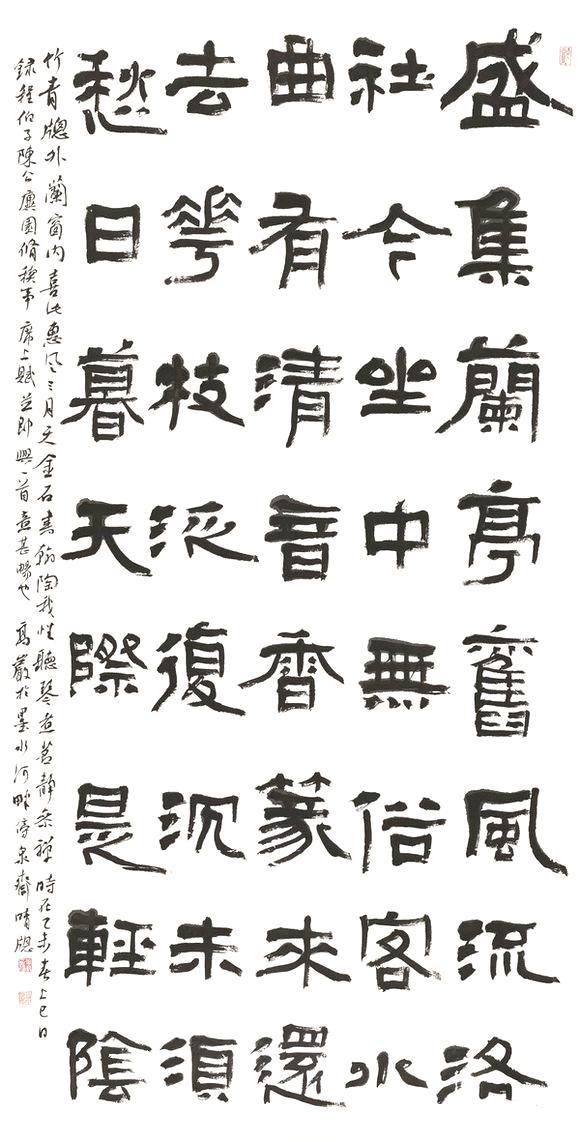 盛集蘭亭舊風流洛
社今坐中無俗客水
曲有清音香篆來還
去花枝泛復沉未須
愁日暮天際是輕陰
竹青牕外蘭窗内喜此惠風三月天金石書翰陶我性聽琴煮茗靜參禪時在乙未春上巳日
錄程伯子陳公廙園脩禊事席上賦並即興一首意甚暢也高巖於墨水河畔滂泉齋晴牕